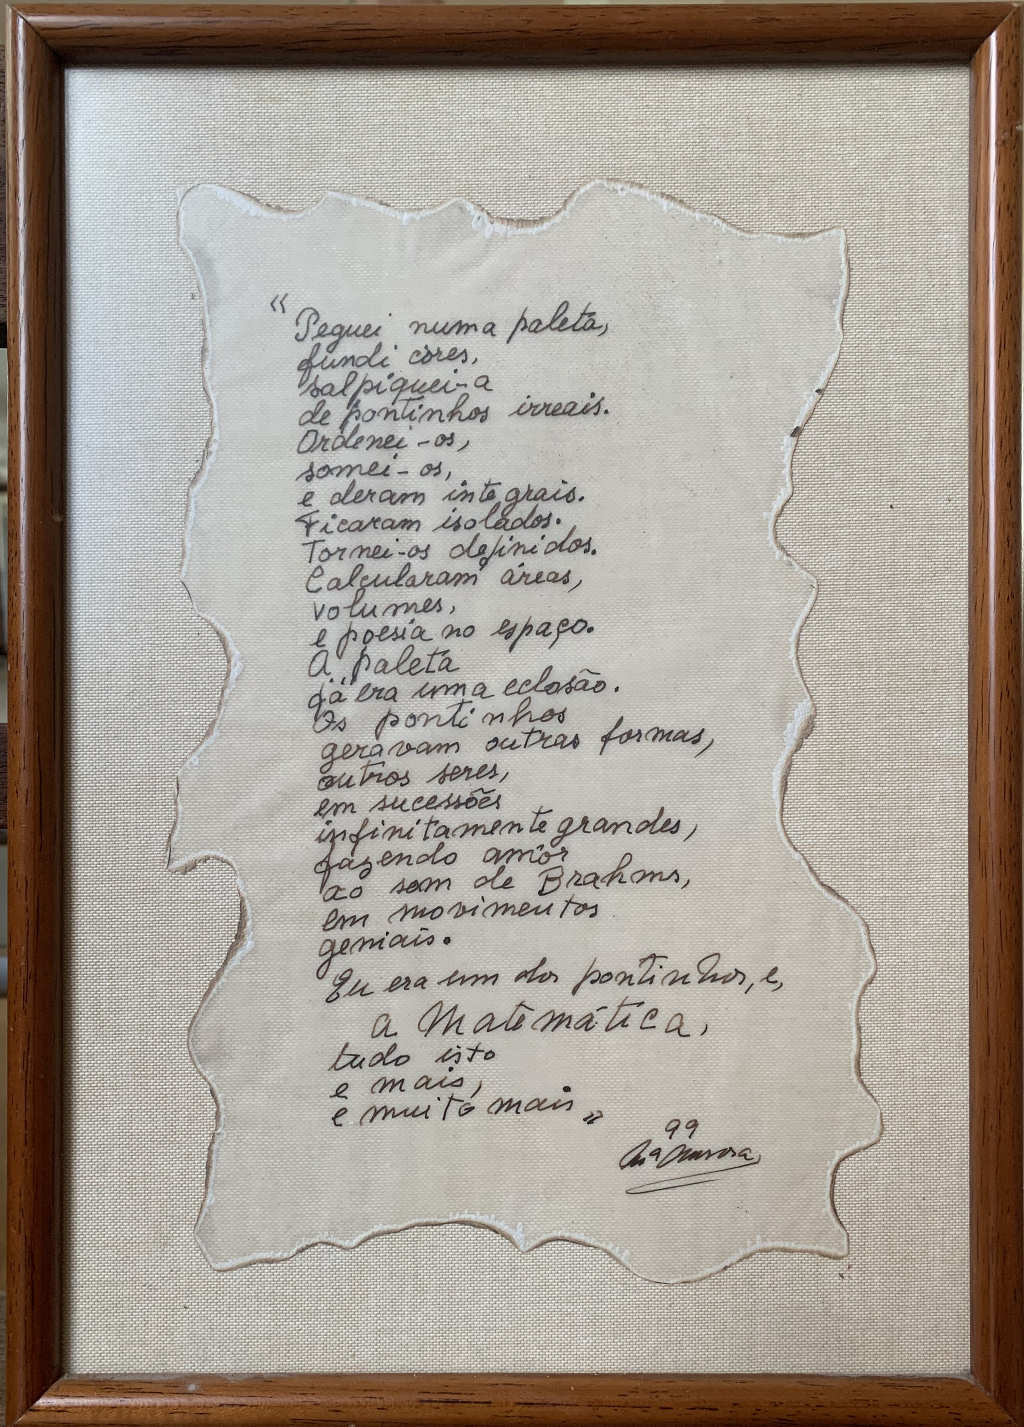 “Peguei numa paleta,
fundi côres,
salpiquei-a
de pontinhos irreais.
Ordenei-os,
somei-os,
e deram integrais.
Ficaram isolados.
Tornei-os definidos.
Calcularam áreas,
volumes,
e poesia no espaço.
A paleta
já era uma eclosão.
Os pontinhos
geravam outras formas,
outros seres,
em sucessões
infinitamente grandes,
fazendo amôr
ao som de Brahms,
em movimentos
geniais.
Eu era um dos pontinhos, e,
a Matemática,
tudo isto
e mais,
e muito mais”
99
Mª Aurora